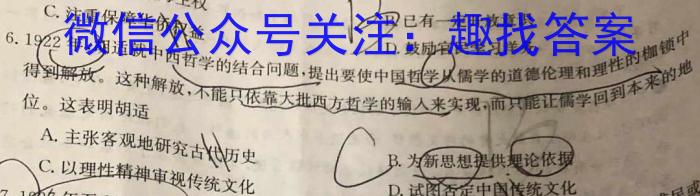 C. 注重保障华侨权益
已有一
6. 1922年,胡适就中西哲学的结合问题,提出要使中国哲学从儒学的道德伦理和理性的枷锁中
D. 鼓励官
微信公众号关注：趣找答案
得到解放。这种解放,不能只依靠大批西方哲学的输入来实现,而只能让儒学回到本来的地
位。这表明胡适
A. 主张客观地研究古代历史
B. 为新思想提供理论依据
C. 以理性精神审视传统文化
D. 试图否定中国传统文化